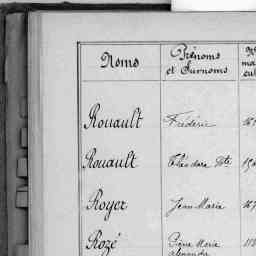 Noms Prénoms et Surnoms
Rouault Frédéric
Rouault Théodore
Royer Jean Marie
Rozé Pierre Marie